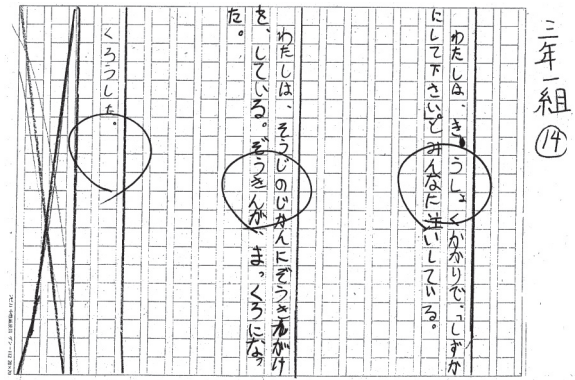 三年一組
⑭
わたしは、きゅうしょくかかりで、「しずか
にして下さい」とみんなに注いしている。
わたしは、そうじのじかんにぞうきんがけ
を、している。ぞうきんが、まっくろになっ
た。
くろうした。